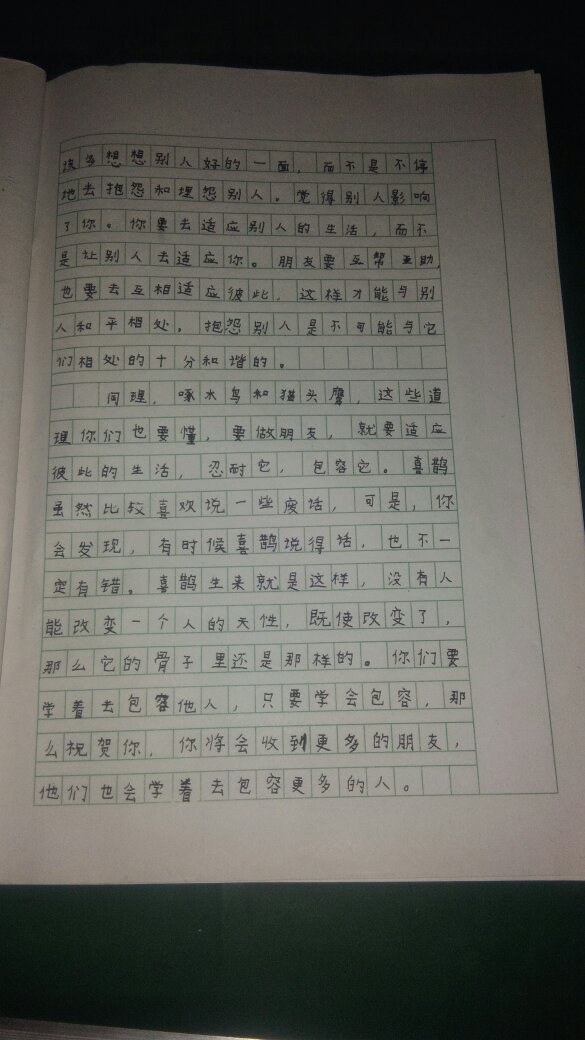 该多想想别人好的一面，而不是不停
地去抱怨和埋怨别人。觉得别人影响
了你。你要去适应别人的生活，而不
是让别人去适应你。朋友要互帮互助，
也要去互相适应彼此，这样才能与别
人和平相处。抱怨别人是不可能与它
们相处的十分和谐的。
同理，啄木鸟和猫头鹰，这些道
理你们也要懂，要做朋友，就要适应
彼此的生活，忍耐它，包容它。喜鹊
虽然比较喜欢说一些废话，可是，你
会发现，有时候喜鹊说得话，也不一
定有错。喜鹊生来就是这样，没有人
能改变一个人的天性，既使改变了，
那么它的骨子里还是那样的。你们要
学着去包容他人，只要学会包容，那
么祝贺你，你将会收到更多的朋友，
他们也会学着去包容更多的人。